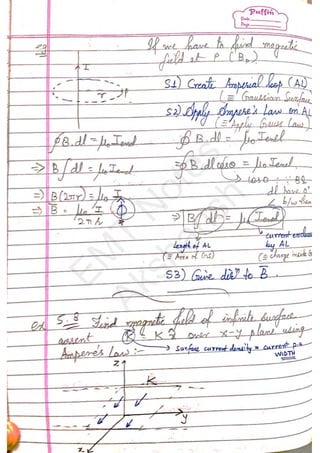 Puffin
Date
Page
eg
If we have to find magnetic
field at P (Bp)
I
r
P
S1) Create Amperial loop (AL)
(≡ Gaussian Surface
S2) Apply Ampere's Law on AL
(≡ Apply Gauss Law)
∮B.dl = μ₀ Iencl
∮B.dl = μ₀ Iencl
⇒ B∫dl = μ₀ Iencl
⇒ ∮B.dl cosθ = μ₀ Iencl
cos 0 ∵ B &
dl have 0°
b/w them
⇒ B(2πr) = μ₀ I
⇒ B = μ₀ I / 2πr
⇒ B∫dl = μ₀ Iencl
length of AL
(≡ Area of GS)
current enclosed
by AL
(≡ charge inside
S3) Give dirⁿ to B.
EMT Notes
ex 5.8 Find magnetic field of infinite surface
current K = K ŷ over x-y plane using
Ampere's Law :-
→ Surface current density = current p.u
WIDTH
z
K
y
x